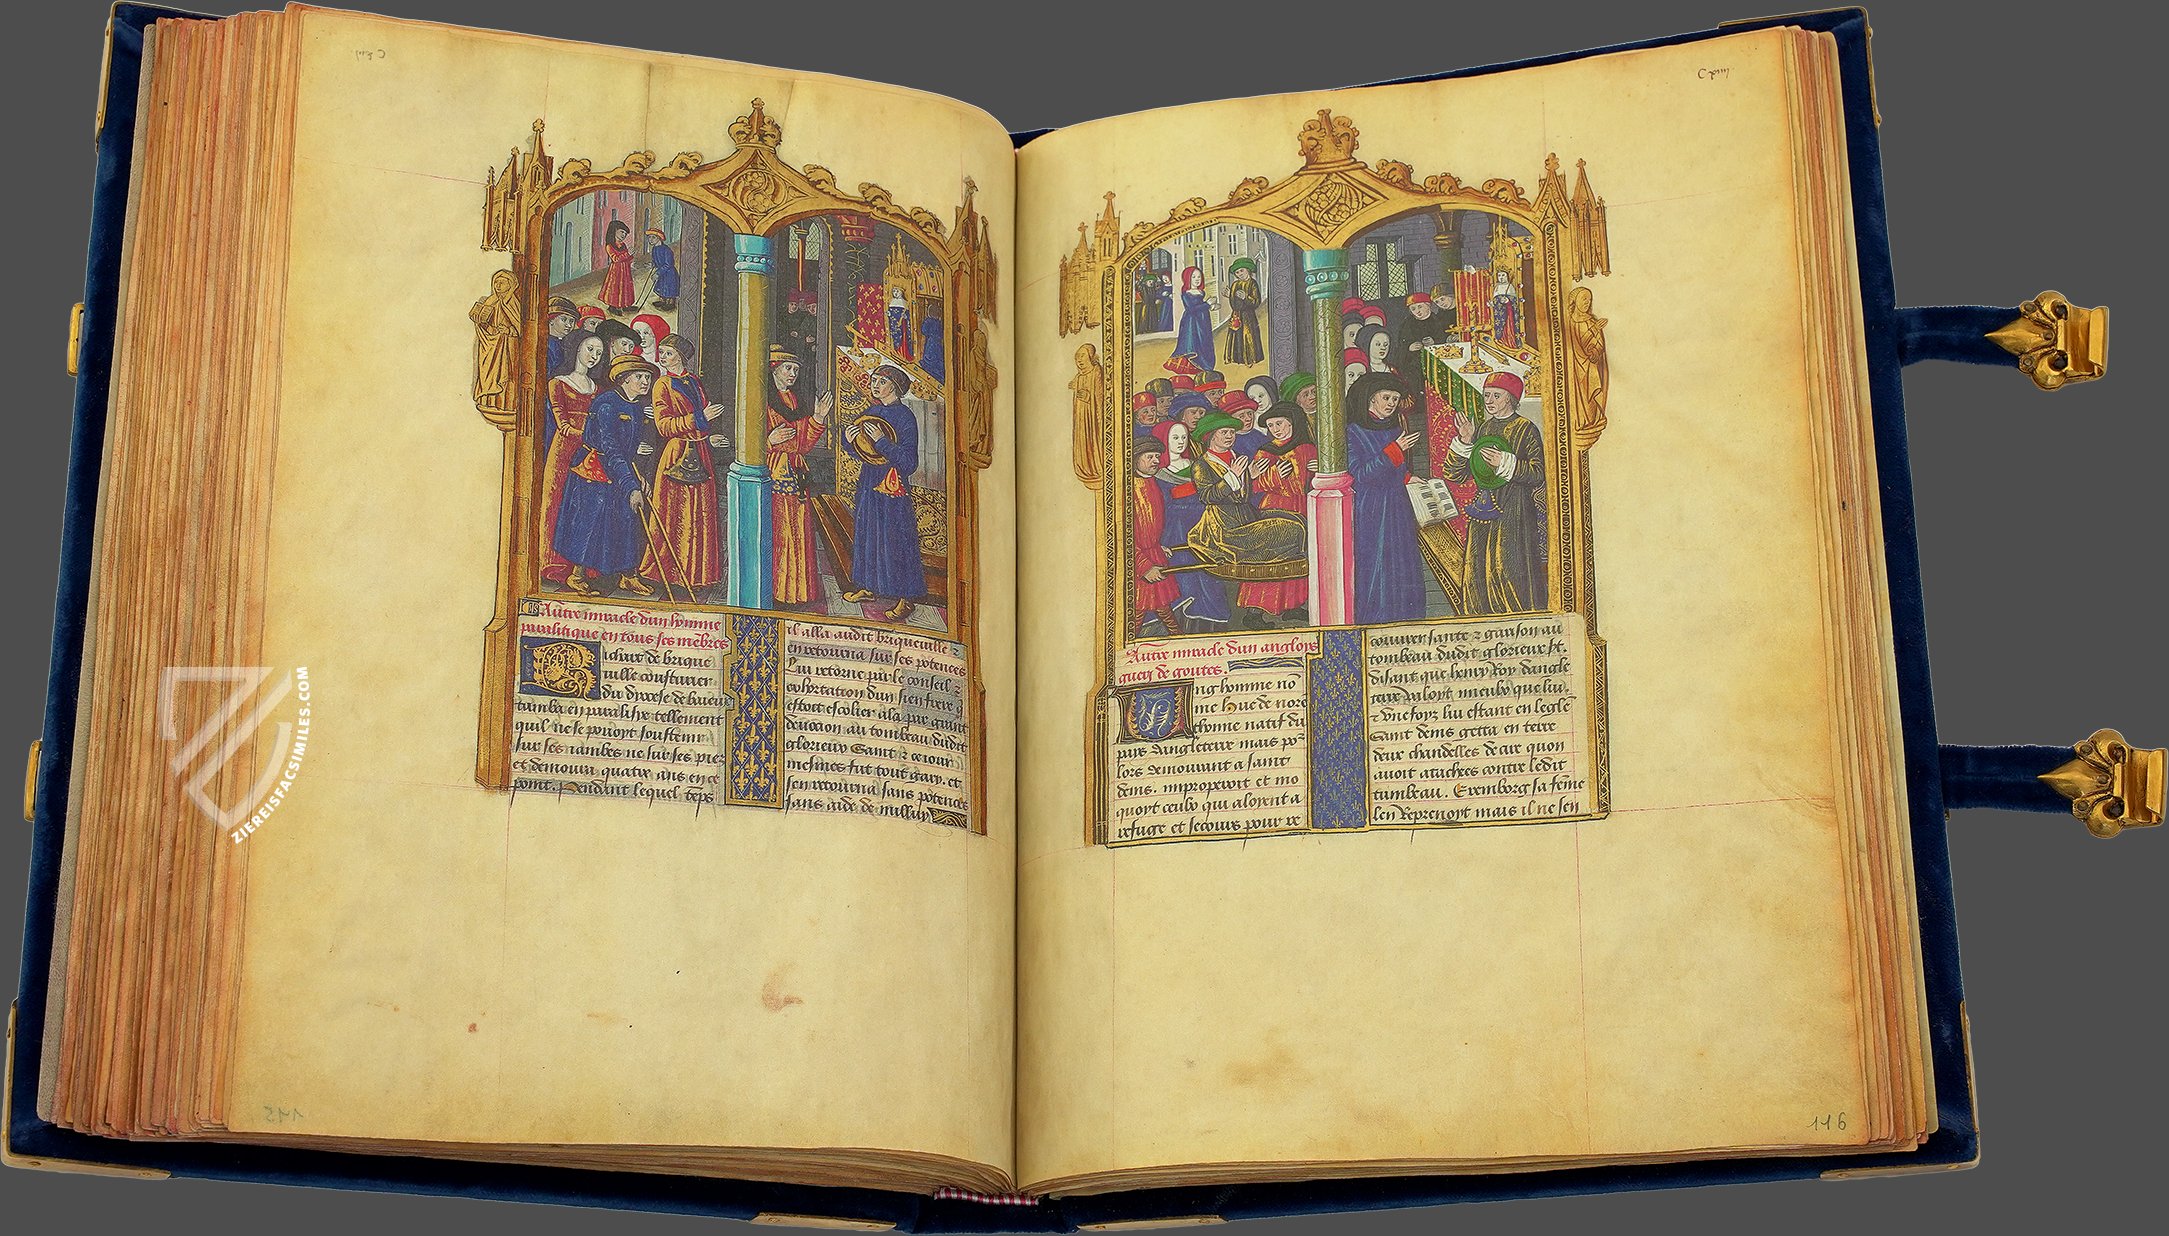 C xiiii
Autre miracle dun homme
paralitique en tous ses mēbres
Richart de brique
uille cousturier
du diocese de baieux
tumba en paralisie tellement
quil ne se pouoyt soustenir
sur ses iambes ne sur ses piez
et demoura quatre ans en ce
point. Pendant lequel tēps
il alla audit briqueuille z
en retourna sur ses potences
Lui retorne par le conseil z
exhortacion dun sien frere q
estoit escolier a la par grant
deuocion au tombeau dudit
glorieux Saint z ce iour
mesmes fut tout gary. et
sen retourna sans potences
sans aide de nulluy
Autre miracle dun anglois
guery de goutes.
Vng homme nō
me hue de nore
thonne natif du
pays dangleterre mais po²
lors demourant a saint
denis. improperoit et mo
quoyt ceulx qui aloyent a
refuge et secours pour re
couurer sante z garison au
tombeau dudit glorieux st.
disant que henry Roy dangle
terre valoyt mieulx que lui.
z vne foyz lui estant en leglē
Saint denis getta en terre
deux chandelles de cire quon
auoit atachees contre ledit
tumbeau. Eremborg sa fēme
len Reprenoyt mais il ne sen
115
116
ZIEREISFACSIMILES.COM